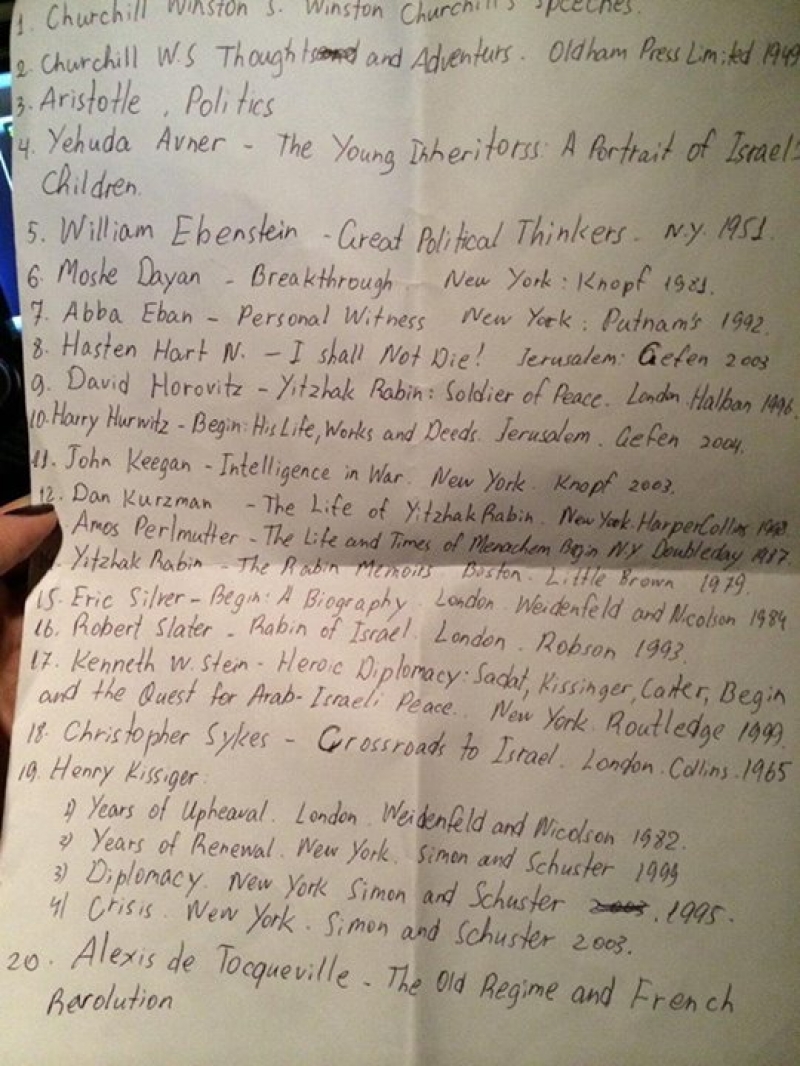 1. Churchill Winston S. Winston Churchill's Speeches.
2. Churchill W.S Thoughts and Adventurs. Oldham Press Limited 1949
3. Aristotle, Politics
4. Yehuda Avner - The Young Inheritorss: A Portrait of Israel's
Children.
5. William Ebenstein - Great Political Thinkers. N.Y. 1951.
6. Moshe Dayan - Breakthrough. New York: Knopf 1981.
7. Abba Eban - Personal Witness New York: Putnam's 1992.
8. Hasten Hart N. - I shall Not Die! Jerusalem: Gefen 2003
9. David Horovitz - Yitzhak Rabin: Soldier of Peace. London Halban 1996.
10. Harry Hurwitz - Begin: His Life, Works and Deeds. Jerusalem. Gefen 2004.
11. John Keegan - Intelligence in War. New York. Knopf 2003.
12. Dan Kurzman - The Life of Yitzhak Rabin. New York. HarperCollins 1998.
Amos Perlmutter - The Life and Times of Menachem Begin N.Y. Doubleday 1987.
Yitzhak Rabin - The Rabin Memoirs. Boston. Little Brown 1979.
15. Eric Silver - Begin: A Biography. London. Weidenfeld and Nicolson 1984
16. Robert Slater - Rabin of Israel. London. Robson 1993.
17. Kenneth W. Stein - Heroic Diplomacy: Sadat, Kissinger, Carter, Begin
and the Quest for Arab-Israeli Peace. New York. Routledge 1999.
18. Christopher Sykes - Crossroads to Israel. London. Collins. 1965
19. Henry Kissiger:
1) Years of Upheaval. London. Weidenfeld and Nicolson 1982.
2) Years of Renewal. New York. Simon and Schuster 1999
3) Diplomacy. New York Simon and Schuster 2003. 1995.
4) Crisis. New York. Simon and Schuster 2003.
20. Alexis de Tocqueville - The Old Regime and French
Revolution